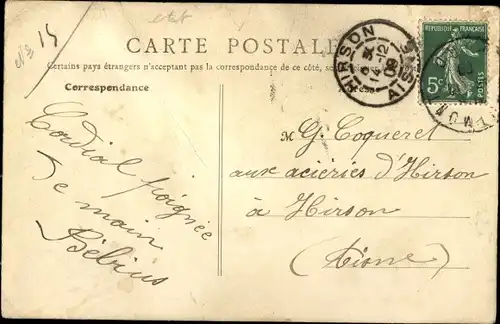 N° 15
CARTE POSTALE
Certains pays étrangers n'acceptant pas la correspondance de ce côté, se
Correspondance
HIRSON
14-12
08
AISNE
REPUBLIQUE FRANÇAISE
5c
POSTES
M G. Coqueret
aux aciéries d'Hirson
à Hirson
(Aisne)
Cordial poignée
De main